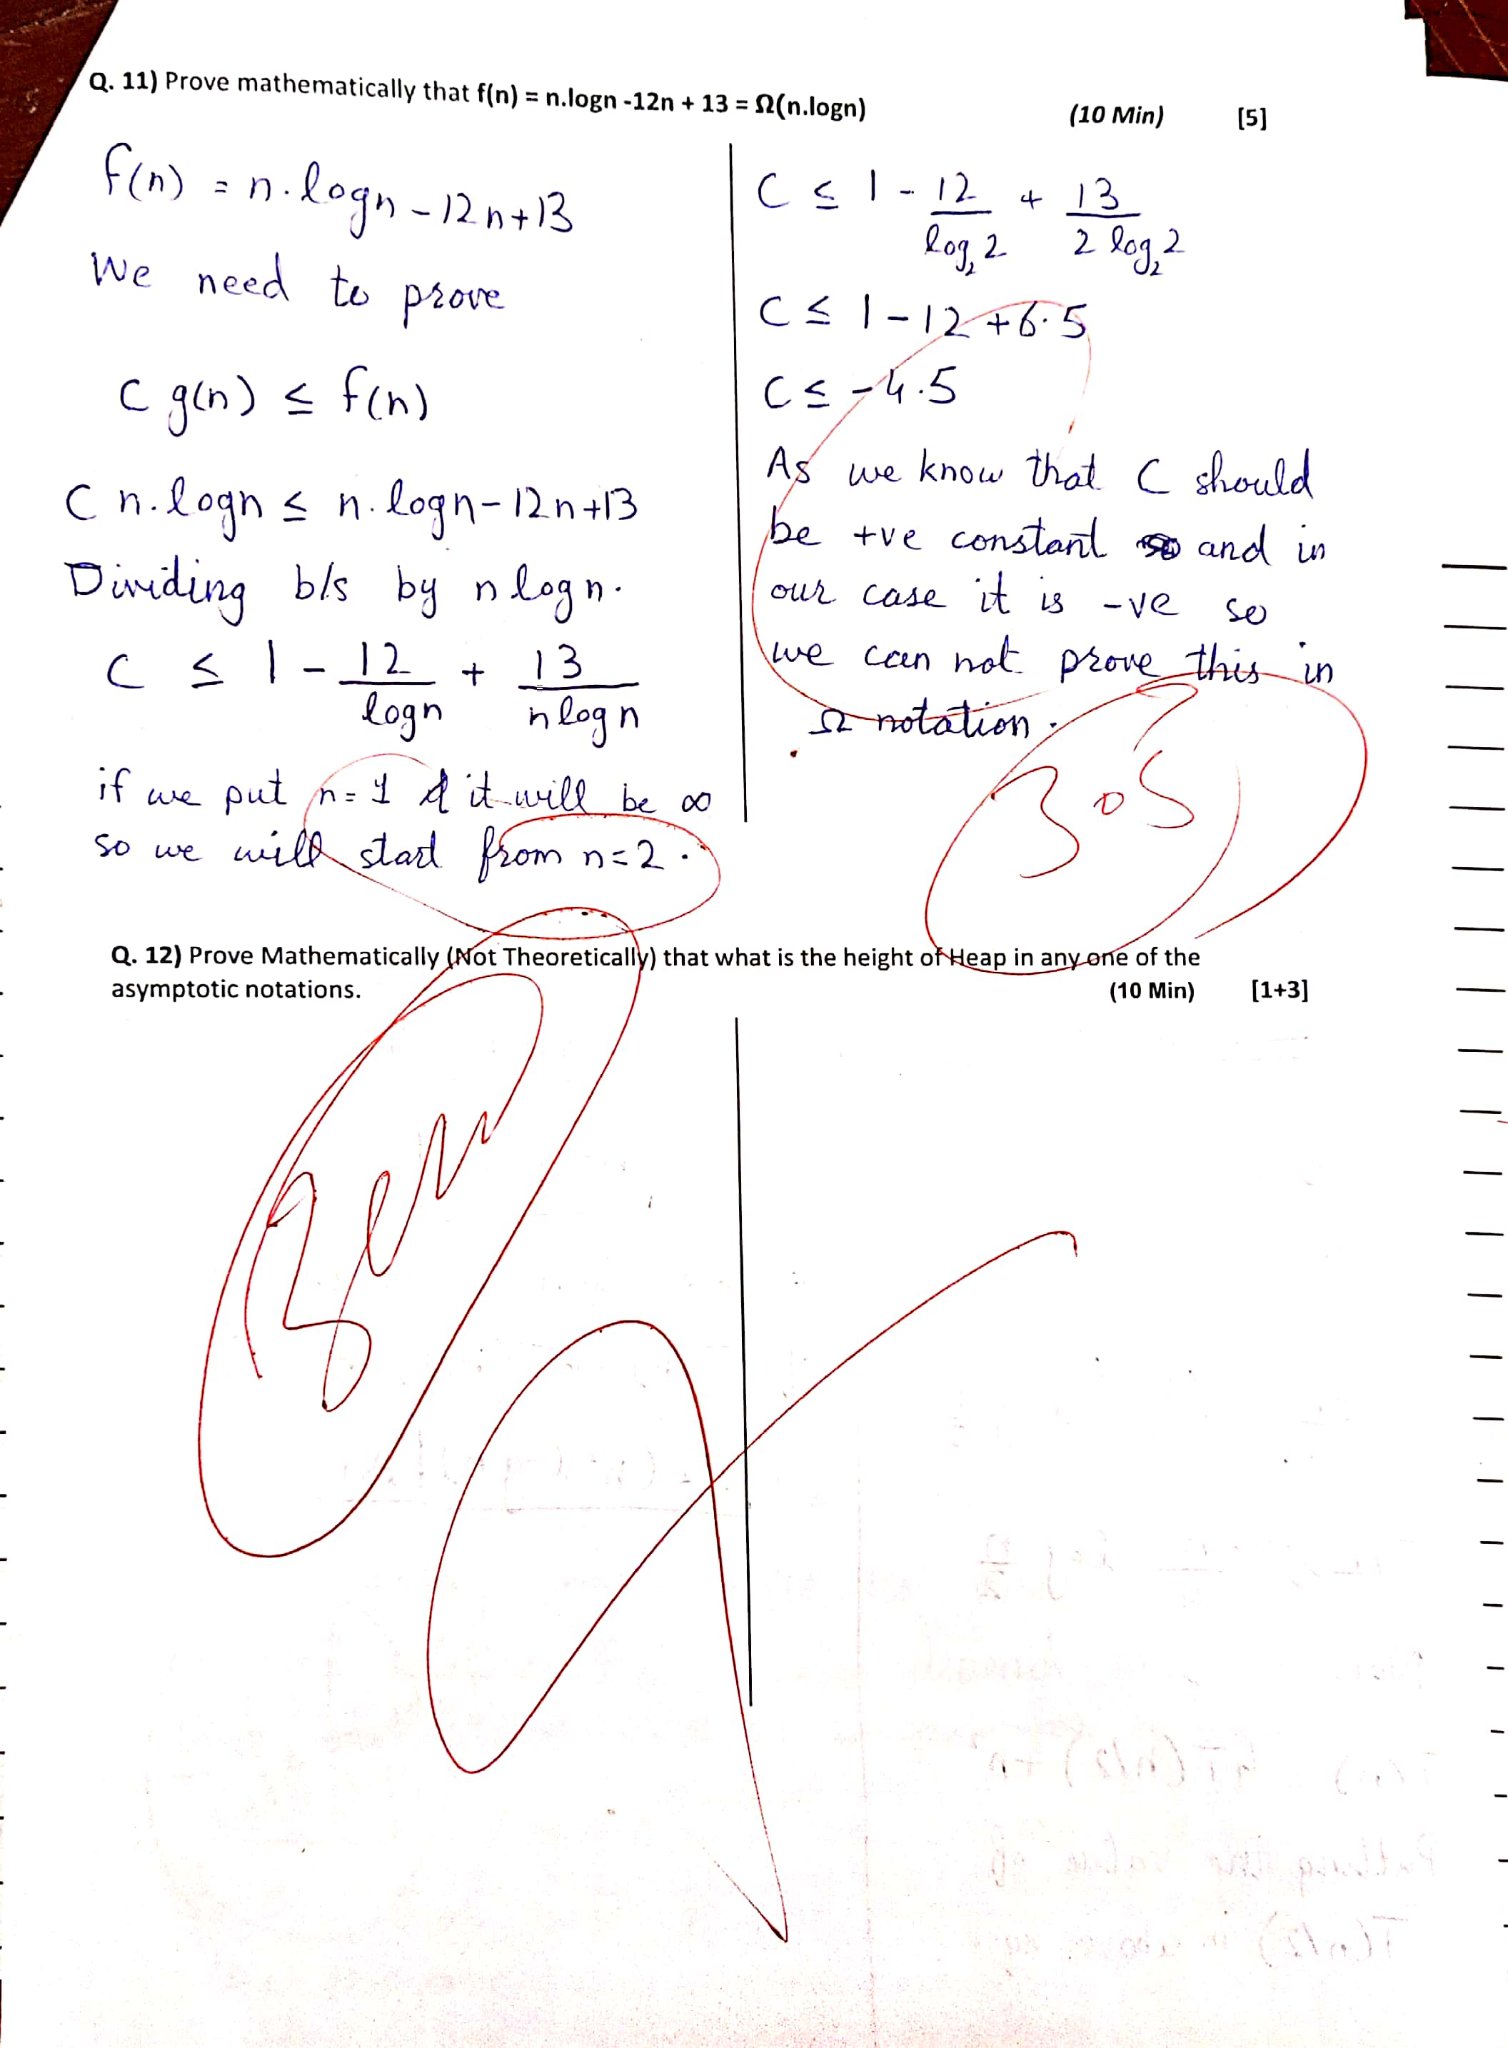 Q. 11) Prove mathematically that f(n) = n.logn -12n + 13 = Ω(n.logn) (10 Min) [5]
f(n) = n.logn - 12n+13
We need to prove
C g(n) ≤ f(n)
C n.logn ≤ n.logn - 12n+13
Dividing b/s by n logn.
C ≤ 1 - 12/logn + 13/nlogn
if we put n=1 it will be ∞
so we will start from n=2.
C ≤ 1 - 12/log₂2 + 13/2 log₂2
C ≤ 1 - 12 + 6.5
C ≤ -4.5
As we know that C should
be +ve constant and in
our case it is -ve so
we can not prove this in
Ω notation.
Q. 12) Prove Mathematically (Not Theoretically) that what is the height of Heap in any one of the
asymptotic notations. (10 Min) [1+3]